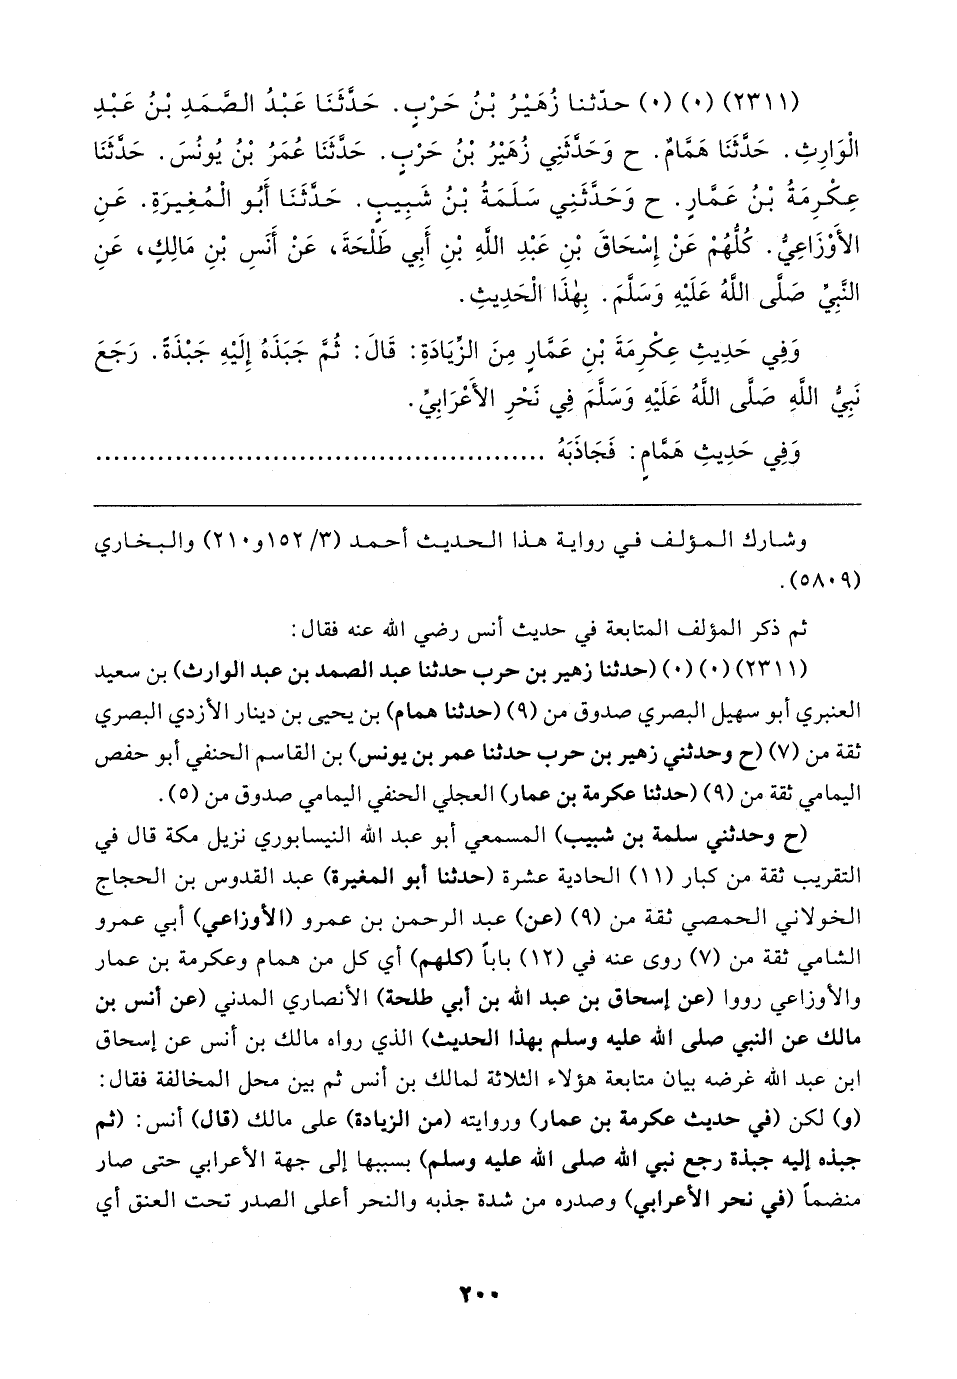 (٢٣١١) (٠) (٠) حدّثنا زُهَيْرُ بْنُ حَرْبٍ. حَدَّثَنَا عَبْدُ الصَّمَدِ بْنُ عَبْدِ
الْوَارِثِ. حَدَّثَنَا هَمَّامٌ. ح وَحَدَّثَنِي زُهَيْرُ بْنُ حَرْبٍ. حَدَّثَنَا عُمَرُ بْنُ يُونُسَ. حَدَّثَنَا
عِكْرِمَةُ بْنُ عَمَّارٍ. ح وَحَدَّثَنِي سَلَمَةُ بْنُ شَبِيبٍ. حَدَّثَنَا أَبُو الْمُغِيرَةِ. عَنِ
الأَوْزَاعِيِّ. كُلُّهُمْ عَنْ إِسْحَاقَ بْنِ عَبْدِ اللَّهِ بْنِ أَبِي طَلْحَةَ، عَنْ أَنَسِ بْنِ مَالِكٍ، عَنِ
النَّبِيِّ صَلَّى اللَّهُ عَلَيْهِ وَسَلَّمَ. بِهٰذَا الْحَدِيثِ.
وَفِي حَدِيثِ عِكْرِمَةَ بْنِ عَمَّارٍ مِنَ الزِّيَادَةِ: قَالَ: ثُمَّ جَبَذَهُ إِلَيْهِ جَبْذَةً. رَجَعَ
نَبِيُّ اللَّهِ صَلَّى اللَّهُ عَلَيْهِ وَسَلَّمَ فِي نَحْرِ الأَعْرَابِيِّ.
وَفِي حَدِيثِ هَمَّامٍ: فَجَاذَبَهُ ..................................................
وشارك المؤلف في رواية هذا الحديث أحمد (٣/ ١٥٢ و٢١٠) والبخاري
(٥٨٠٩).
ثم ذكر المؤلف المتابعة في حديث أنس رضي الله عنه فقال:
(٢٣١١) (٠) (٠) (حدثنا زهير بن حرب حدثنا عبد الصمد بن عبد الوارث) بن سعيد
العنبري أبو سهيل البصري صدوق من (٩) (حدثنا همام) بن يحيى بن دينار الأزدي البصري
ثقة من (٧) (ح وحدثني زهير بن حرب حدثنا عمر بن يونس) بن القاسم الحنفي أبو حفص
اليمامي ثقة من (٩) (حدثنا عكرمة بن عمار) العجلي الحنفي اليمامي صدوق من (٥).
(ح وحدثني سلمة بن شبيب) المسمعي أبو عبد الله النيسابوري نزيل مكة قال في
التقريب ثقة من كبار (١١) الحادية عشرة (حدثنا أبو المغيرة) عبد القدوس بن الحجاج
الخولاني الحمصي ثقة من (٩) (عن) عبد الرحمن بن عمرو (الأوزاعي) أبي عمرو
الشامي ثقة من (٧) روى عنه في (١٢) باباً (كلهم) أي كل من همام وعكرمة بن عمار
والأوزاعي رووا (عن إسحاق بن عبد الله بن أبي طلحة) الأنصاري المدني (عن أنس بن
مالك عن النبي صلى الله عليه وسلم بهذا الحديث) الذي رواه مالك بن أنس عن إسحاق
ابن عبد الله غرضه بيان متابعة هؤلاء الثلاثة لمالك بن أنس ثم بين محل المخالفة فقال:
(و) لكن (في حديث عكرمة بن عمار) وروايته (من الزيادة) على مالك (قال) أنس: (ثم
جبذه إليه جبذة رجع نبي الله صلى الله عليه وسلم) بسببها إلى جهة الأعرابي حتى صار
منضماً (في نحر الأعرابي) وصدره من شدة جذبه والنحر أعلى الصدر تحت العنق أي
٢٠٠